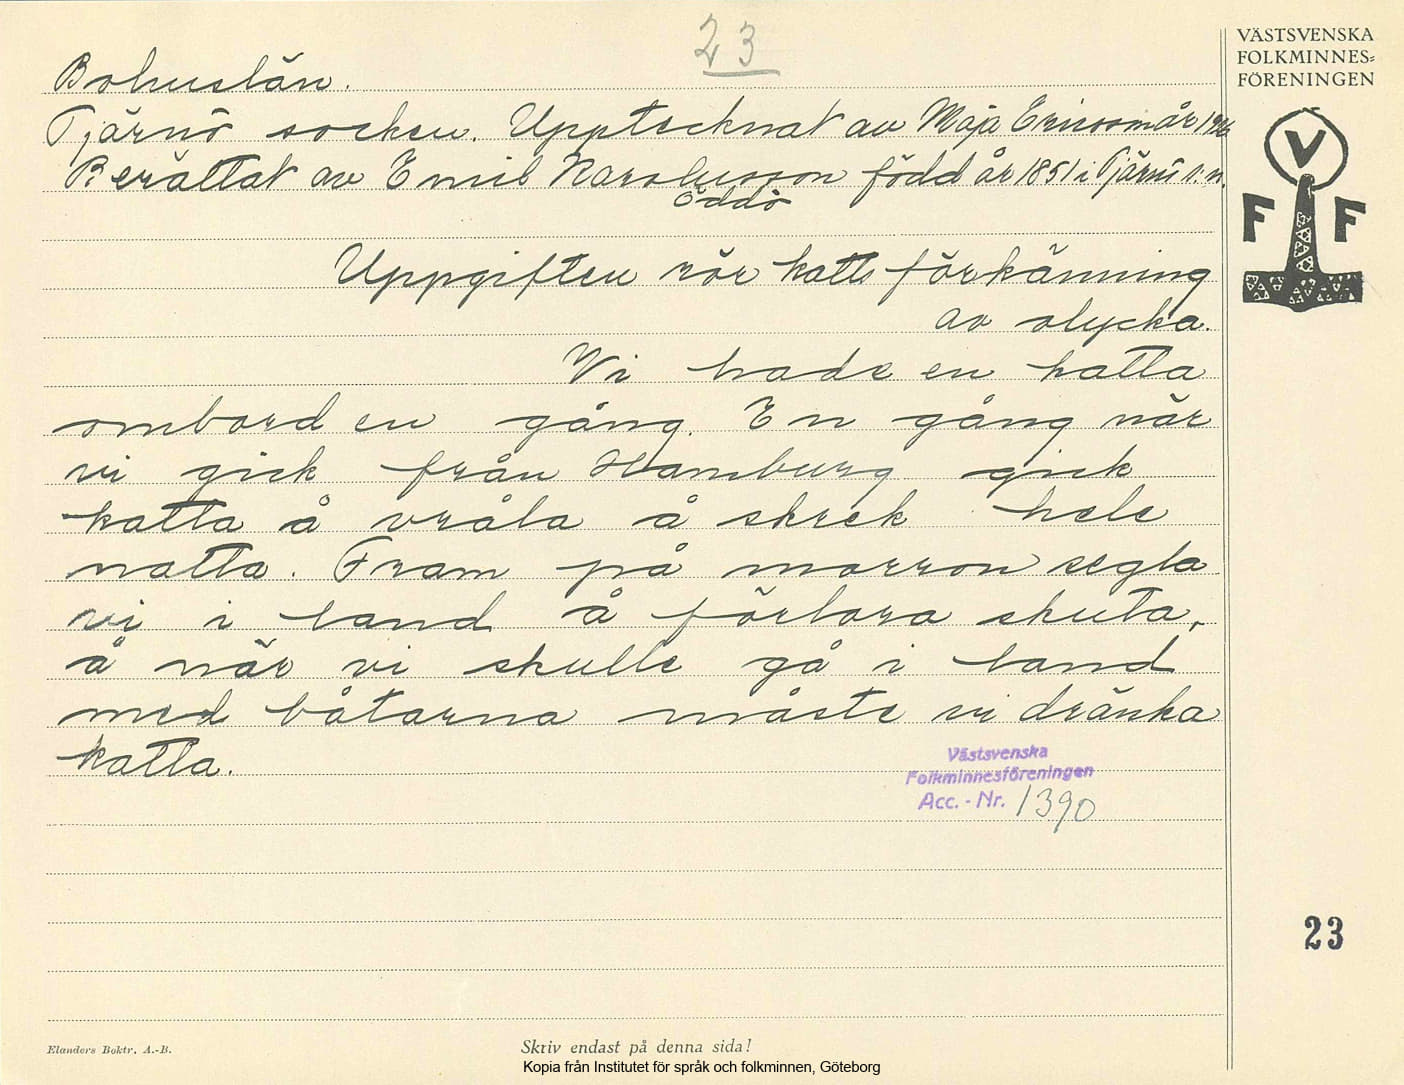 23
VÄSTSVENSKA
FOLKMINNES=
FÖRENINGEN
V
F F
Bohuslän.
Tjärnö socken. Upptecknat av Maja Ericsson år 1926
Berättat av Emil Karolusson född år 1851 i Tjärnö s:n.
Öddö
Uppgiften rör katts förkänning
av olycka.
Vi hade en katta
ombord en gång. En gång når
vi gick från Hamburg gick
katta å vråla å skrek hele
natta. Fram på morron segla
vi i land å förlora skuta,
å når vi skulle gå i land
med båtarna måste vi dränka
katta.
Västsvenska
Folkminnesföreningen
Acc. - Nr. 1390
23
Elanders Boktr. A.-B.
Skriv endast på denna sida!
Kopia från Institutet för språk och folkminnen, Göteborg